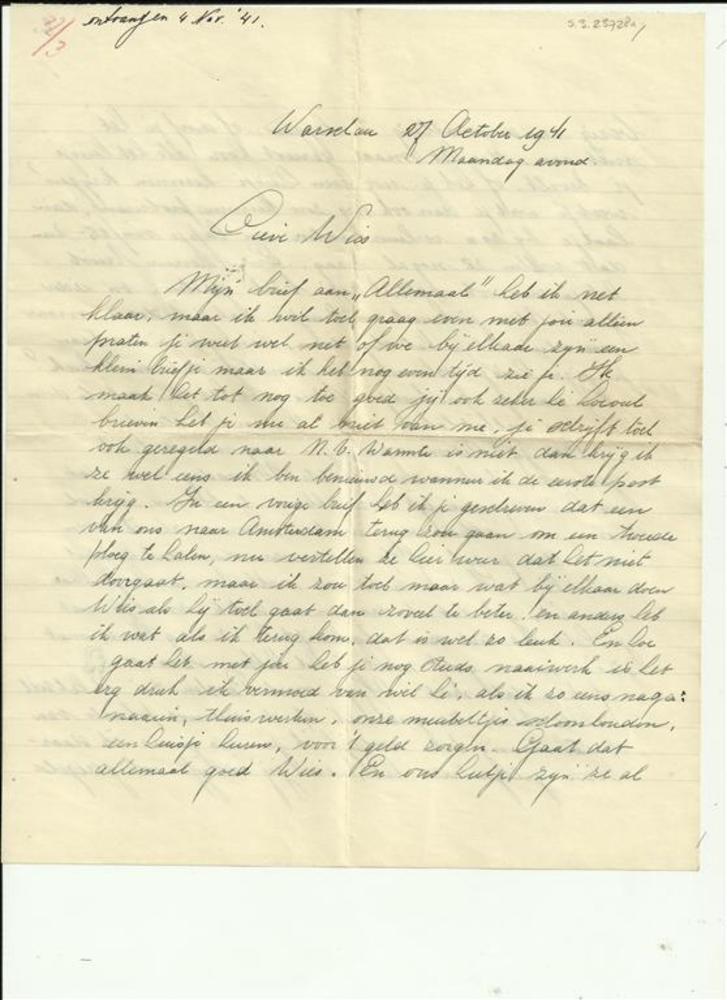 ontvangen 4 Nov. '41.
2/3
Warschau 27 October 1941
Maandag avond.
Lieve Wies
Mijn brief aan „Allemaal" heb ik net
klaar, maar ik wil toch graag even met jou alleen
praten je weet wel net of we bij elkaar zijn een
klein briefje maar ik heb nog even tijd zie je. Ik
maak het tot nog toe goed jij ook zeker hè hoeveel
brieven heb je nu al van me, je schrijft toch
ook geregeld naar N.V. Warmte is niet dan krijg ik
ze wel eens ik ben benieuwd wanneer ik de eerste post
krijg. In een vorige brief heb ik je geschreven dat een
van ons naar Amsterdam terug zou gaan om een tweede
ploeg te halen, nu vertellen ze hier weer dat het niet
doorgaat, maar ik zou toch maar wat bij elkaar doen
Wies als hij toch gaat dan zoveel te beter! en anders heb
ik wat als ik terug kom, dat is wel zo leuk. En hoe
gaat het met jou heb je nog steeds naaiwerk is het
erg druk ik vermoed van wel hè, als ik zo eens naga:
naaien, thuis werken, onze meubeltjes schoonhouden,
een huisje huren, voor 't geld zorgen. Gaat dat
allemaal goed Wies. En ons hutje zijn ze al